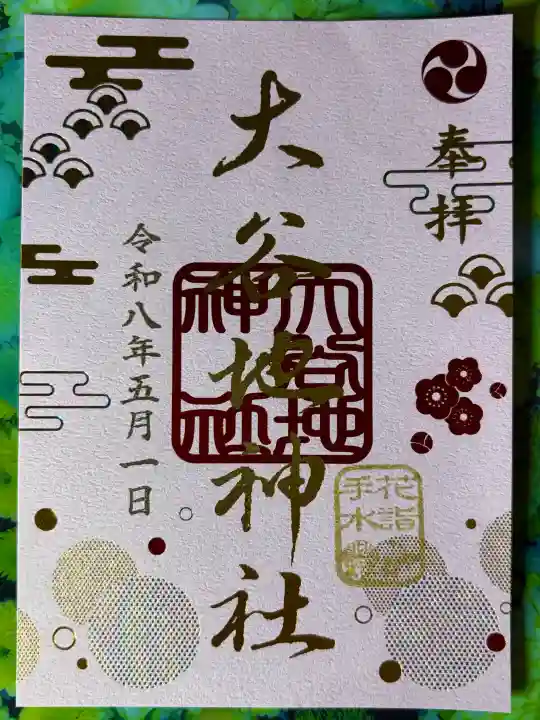 奉拝
大谷地神社
令和八年五月一日
大谷地
神社
花詣
手水